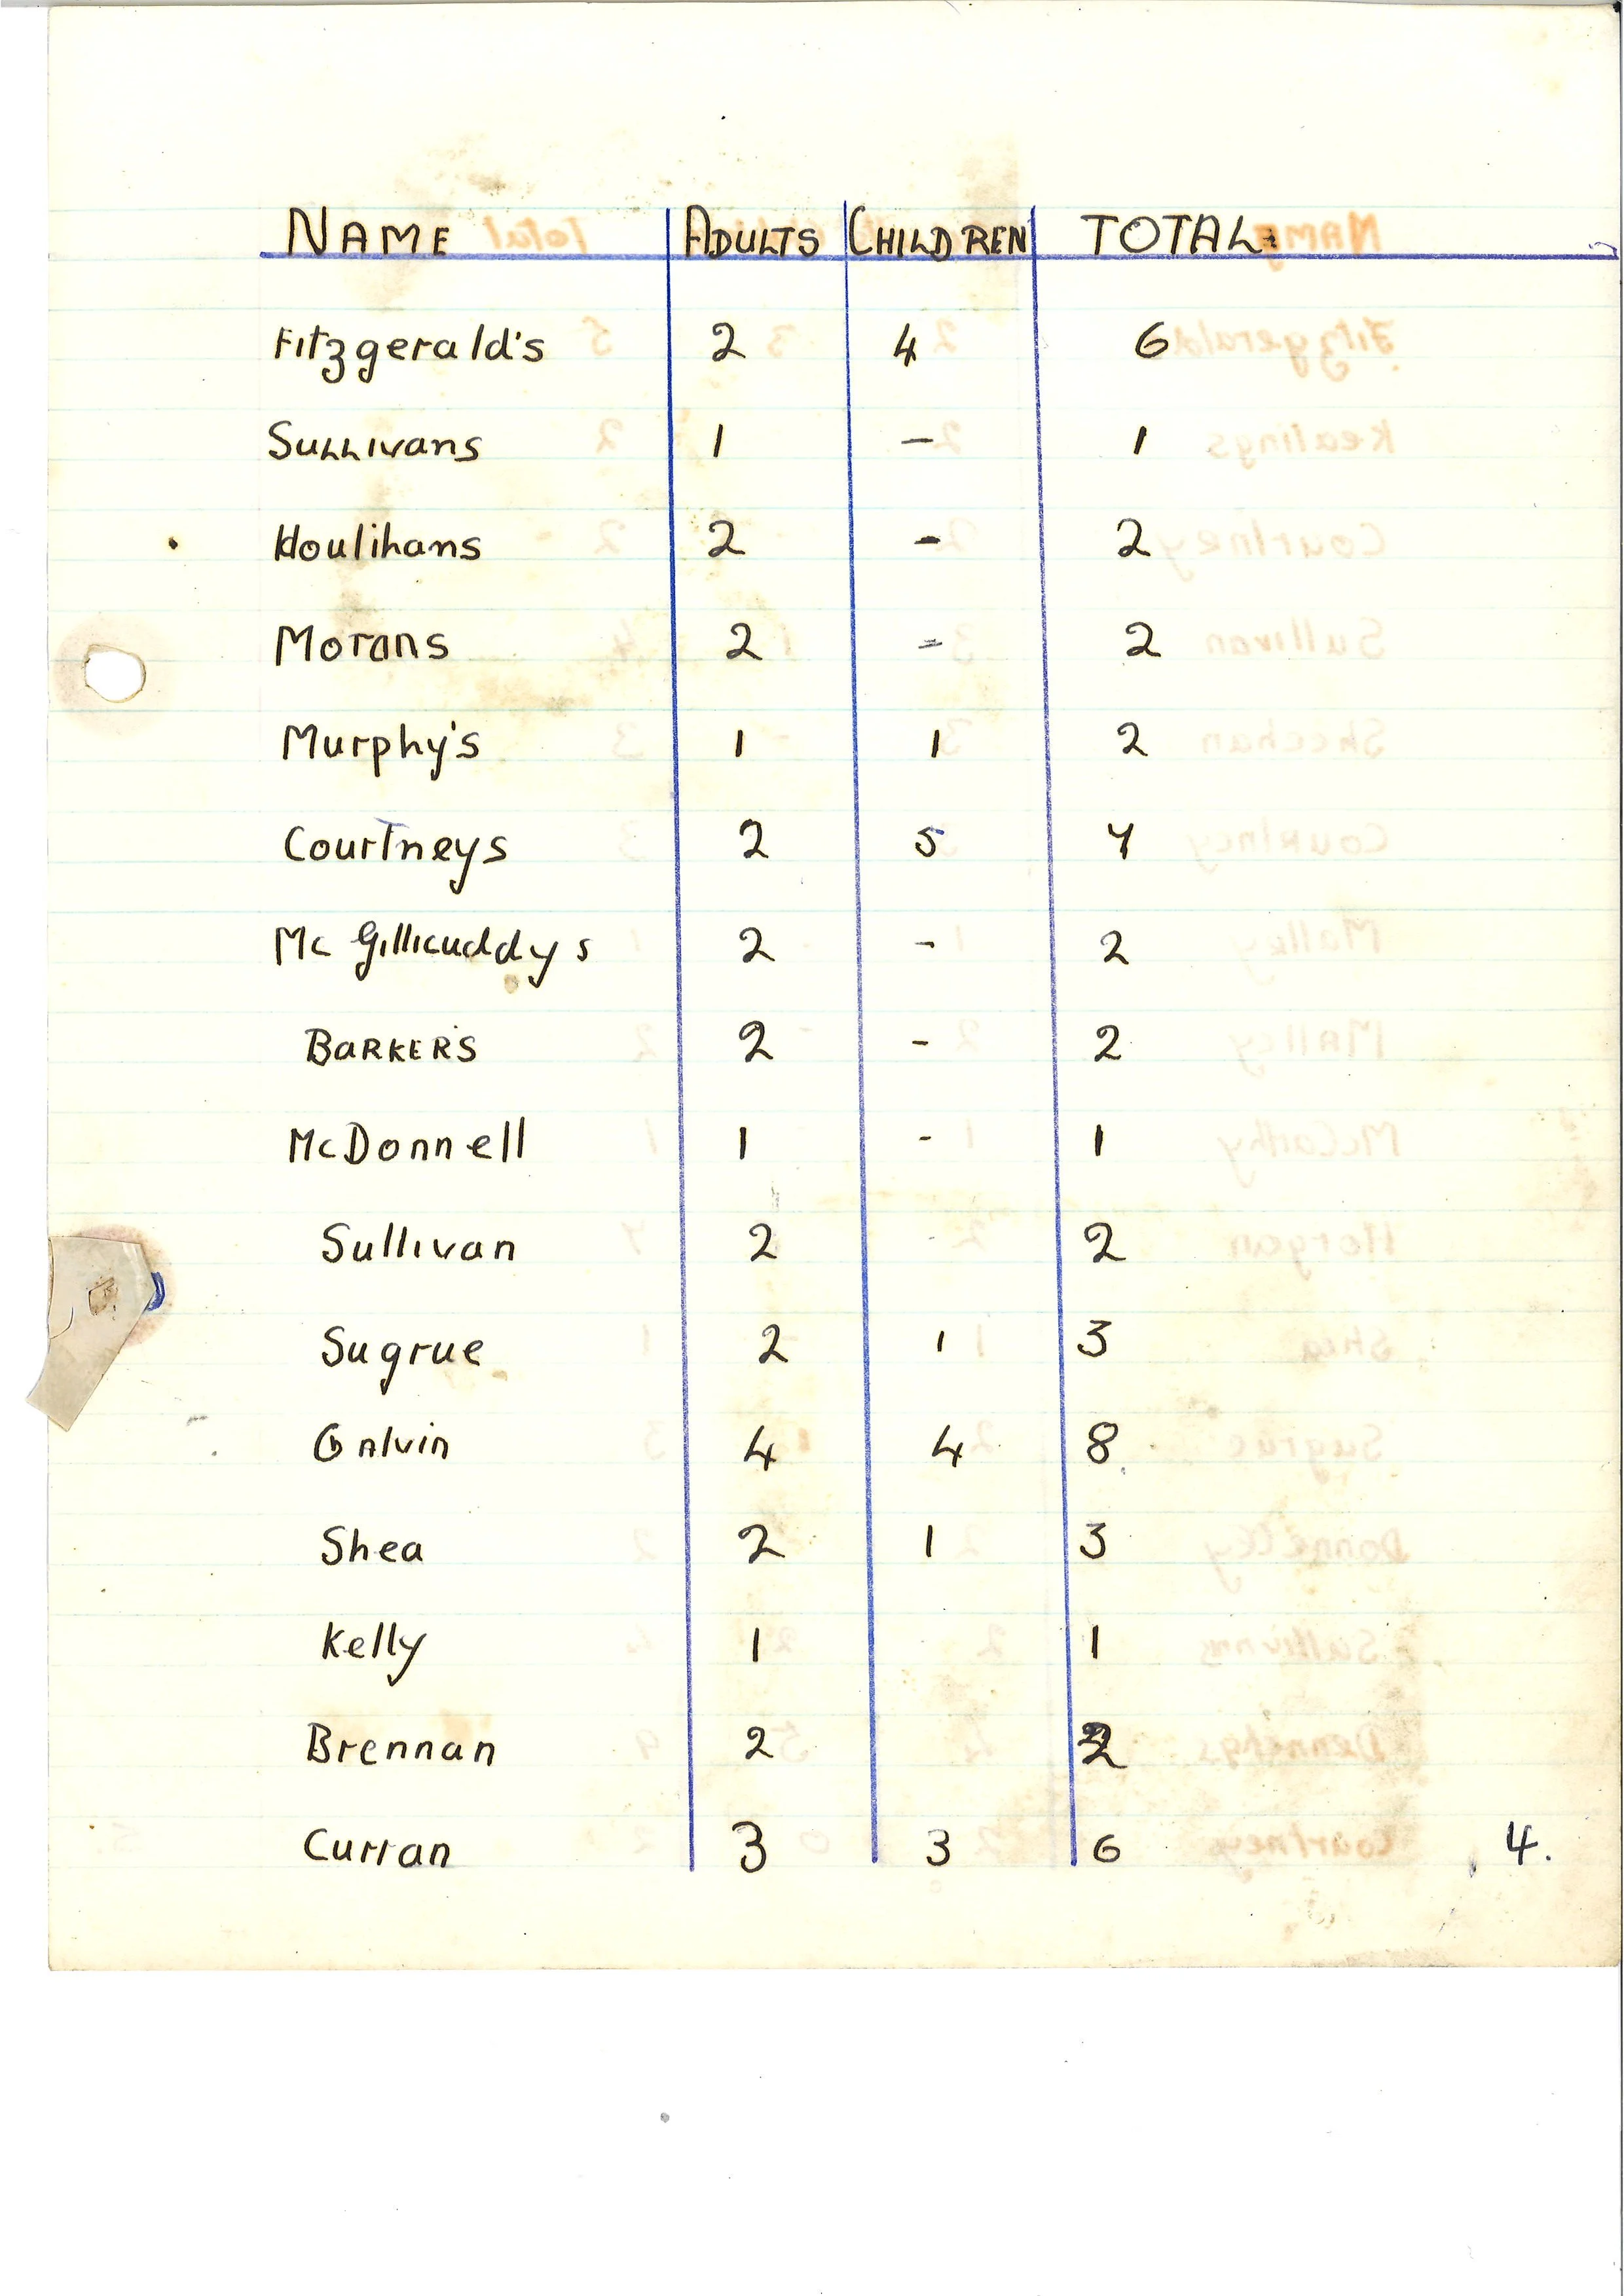 NAME ADULTS CHILDREN TOTAL
Fitzgerald's 2 4 6
Sullivans 1 - 1
Houlihans 2 - 2
Morans 2 - 2
Murphy's 1 1 2
Courtneys 2 5 7
Mc Gillicuddys 2 - 2
BARKERS 2 - 2
McDonnell 1 - 1
Sullivan 2 2
Sugrue 2 1 3
Galvin 4 4 8
Shea 2 1 3
Kelly 1 1
Brennan 2 2
Curran 3 3 6 4.